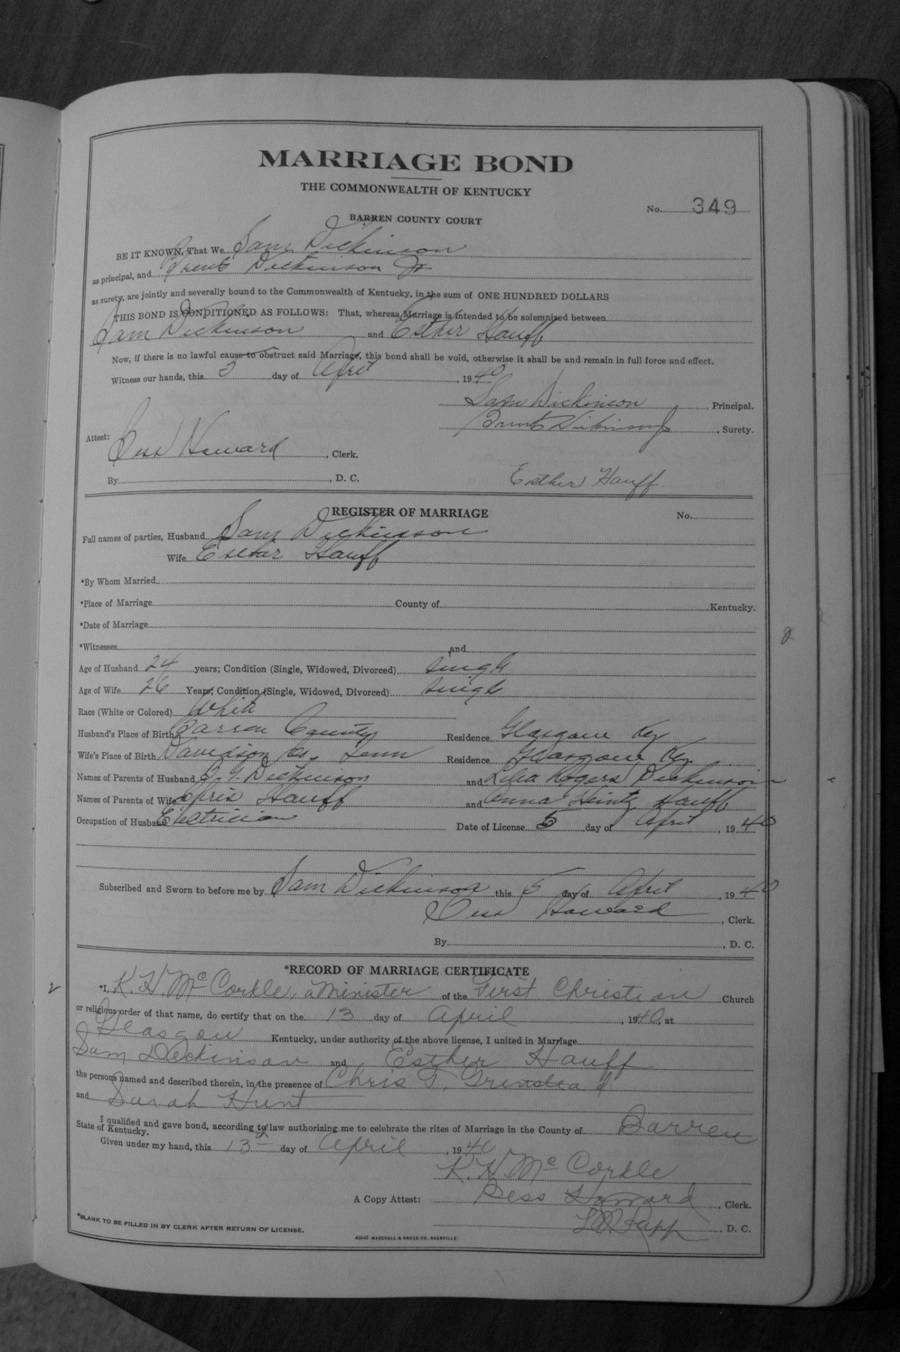 MARRIAGE BOND
THE COMMONWEALTH OF KENTUCKY
No. 349
BARREN COUNTY COURT
BE IT KNOWN, That We Sam Dickinson
as principal, and Brents Dickinson Jr
as surety, are jointly and severally bound to the Commonwealth of Kentucky, in the sum of ONE HUNDRED DOLLARS
THIS BOND IS CONDITIONED AS FOLLOWS: That, whereas Marriage is intended to be solemnized between
Sam Dickinson and Esther Hauff
Now, if there is no lawful cause to obstruct said Marriage, this bond shall be void, otherwise it shall be and remain in full force and effect.
Witness our hands, this 5 day of April, 1940
Sam Dickinson Principal.
Brents Dickinson Jr, Surety.
Attest:
Bess Howard, Clerk.
By , D. C.
Esther Hauff
REGISTER OF MARRIAGE No.
Full names of parties, Husband Sam Dickinson
Wife Esther Hauff
*By Whom Married
*Place of Marriage County of , Kentucky.
*Date of Marriage
*Witnesses and
Age of Husband 24 years; Condition (Single, Widowed, Divorced) single
Age of Wife 26 Years; Condition (Single, Widowed, Divorced) single
Race (White or Colored) White
Husband's Place of Birth Barren County Residence Glasgow Ky
Wife's Place of Birth Davidson Co, Tenn Residence Glasgow Ky.
Names of Parents of Husband Dickinson and Rogers Dickinson
Names of Parents of Wife Hauff and Anna Heintz Hauff
Occupation of Husband Electrician Date of License 5 day of April, 1940
Subscribed and Sworn to before me by Sam Dickinson this 5 day of April, 1940
Bess Howard, Clerk.
By , D. C.
*RECORD OF MARRIAGE CERTIFICATE
2 *I, K. H. McCorkle, a Minister of the First Christian Church
or religious order of that name, do certify that on the 13 day of April, 1940, at
Glasgow Kentucky, under authority of the above license, I united in Marriage
Sam Dickinson and Esther Hauff
the persons named and described therein, in the presence of Chris T Grinstead
and Sarah Hunt
I qualified and gave bond, according to law authorizing me to celebrate the rites of Marriage in the County of Barren
State of Kentucky.
Given under my hand, this 13th day of April, 1940
K. H. McCorkle
A Copy Attest: Bess Howard, Clerk.
Rapp, D. C.
*BLANK TO BE FILLED IN BY CLERK AFTER RETURN OF LICENSE.
MARSHALL & BRUCE CO. NASHVILLE